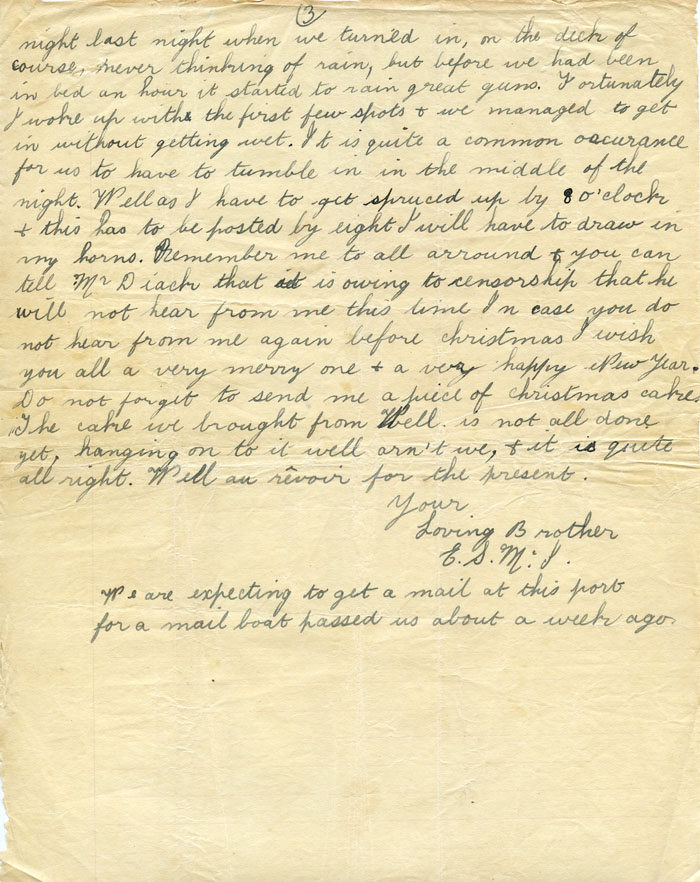 3
night last night when we turned in, on the deck of
course, never thinking of rain, but before we had been
in bed an hour it started to rain great guns. Fortunately
I woke up with the first few spots & we managed to get
in without getting wet. It is quite a common occurance
for us to have to tumble in in the middle of the
night. Well as I have to get spruced up by 8 o'clock
& this has to be posted by eight I will have to draw in
my horns. Remember me to all arround & you can
tell Mr Diack that it is owing to censorship that he
will not hear from me this time In case you do
not hear from me again before christmas I wish
you all a very merry one & a very happy New Year.
Do not forget to send me a piece of christmas cake.
The cake we brought from Well. is not all done
yet, hanging on to it well arn't we, & it is quite
all right. Well au rêvoir for the present.
Your
Loving Brother
E. S. Mc. I.
We are expecting to get a mail at this port
for a mail boat passed us about a week ago.